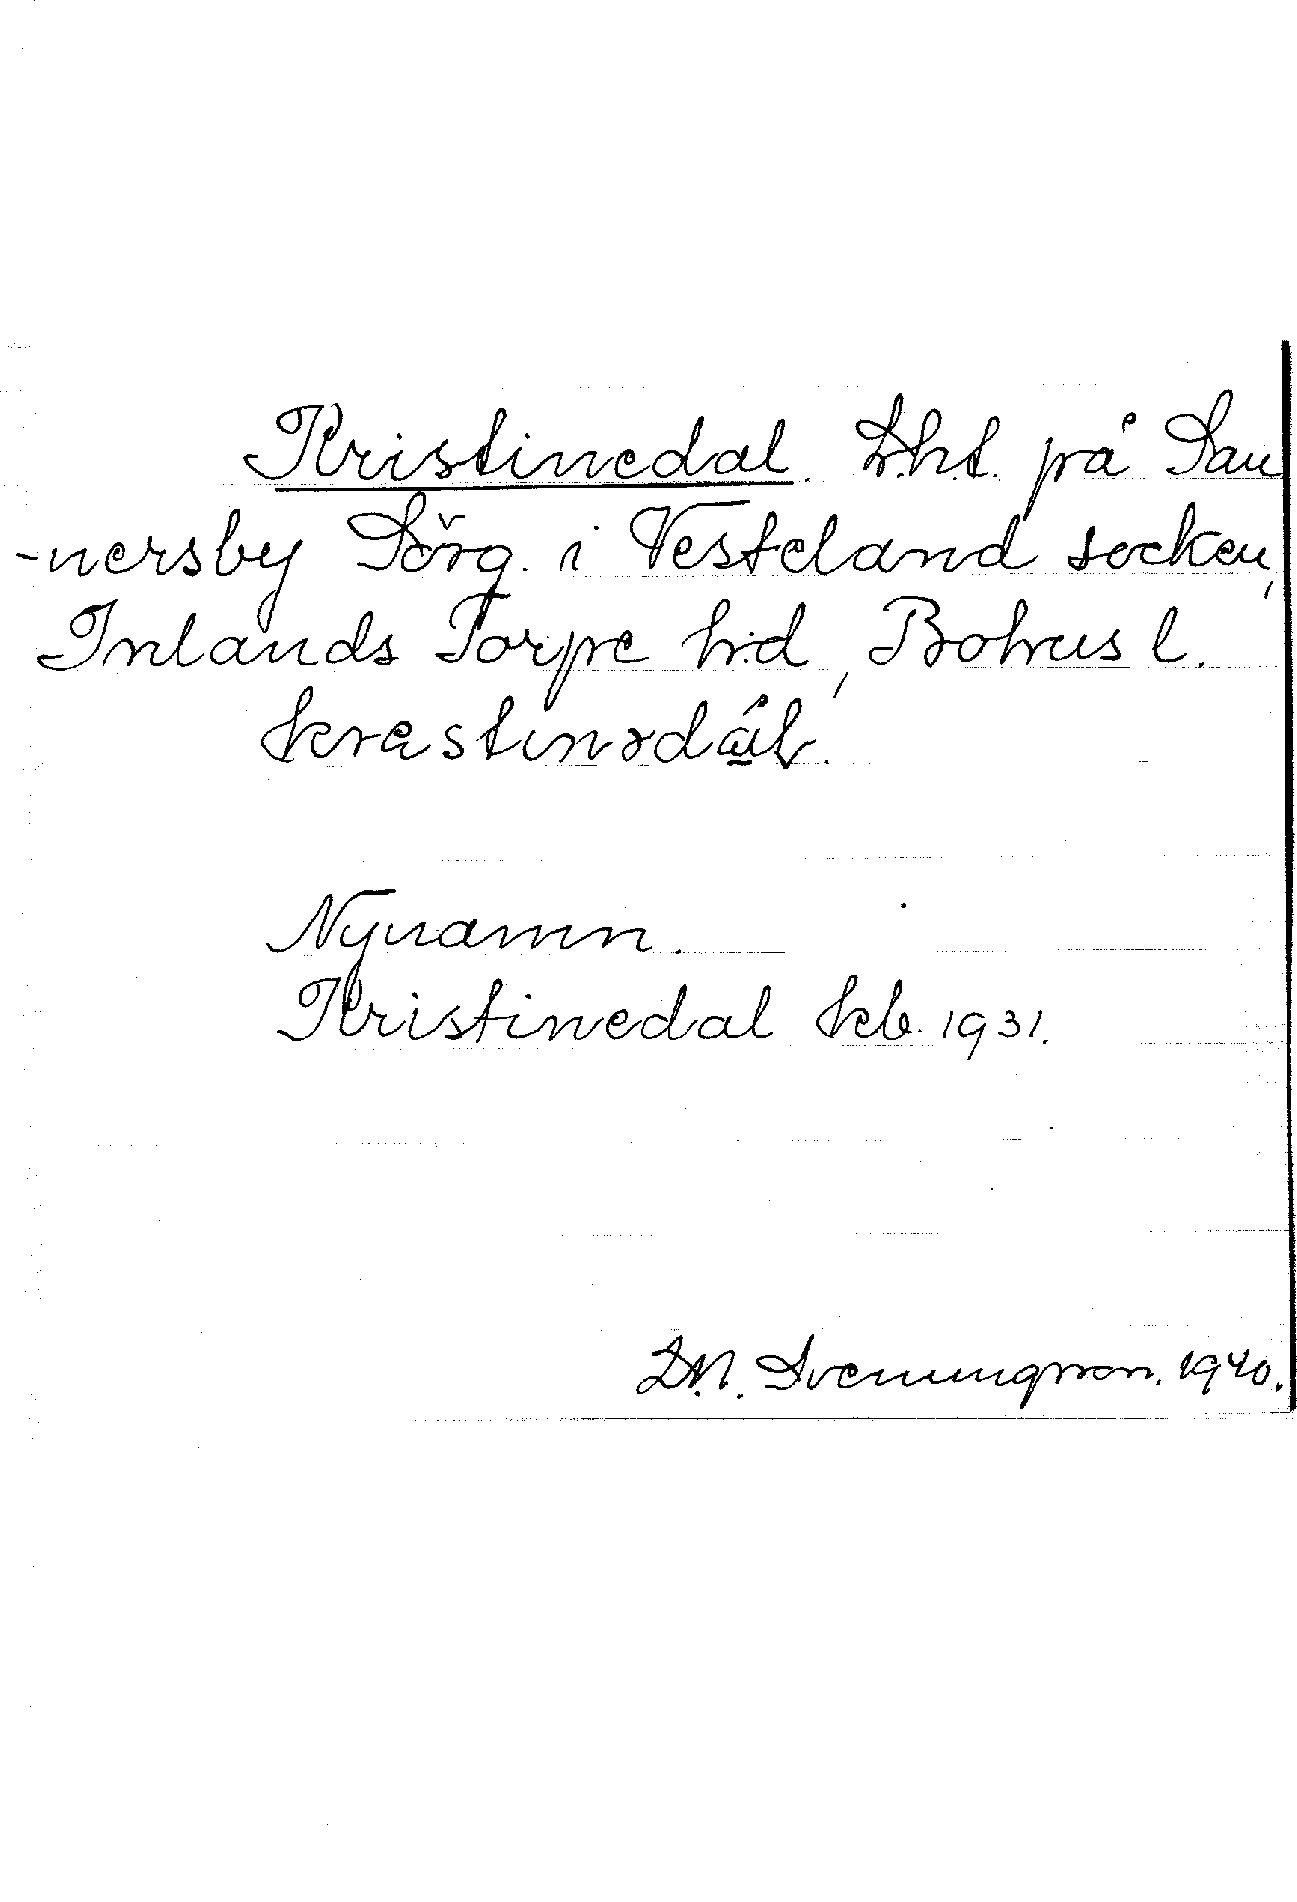 Kristinedal. L.h.t. på San
-nersby Sörg. i Vesteland socken,
Inlands Torpe h:d, Bohus l.
kræstinədál.
Nynamn.
Kristinedal kb. 1931.
D.N. Svenungsson. 1940.